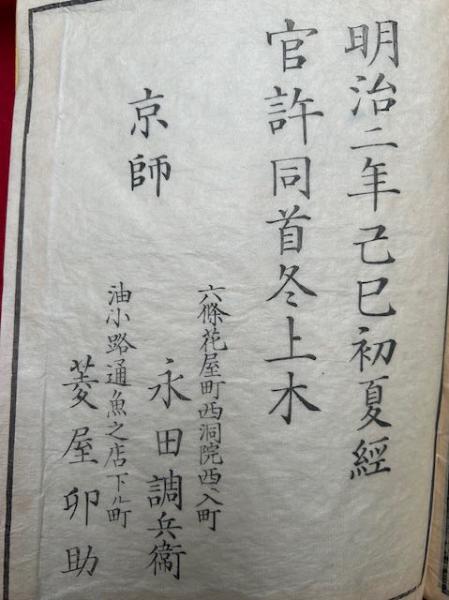 明治二年己巳初夏經
官許同首冬上木
京師
六條花屋町西洞院西入町
永田調兵衞
油小路通魚之店下ル町
菱屋卯助